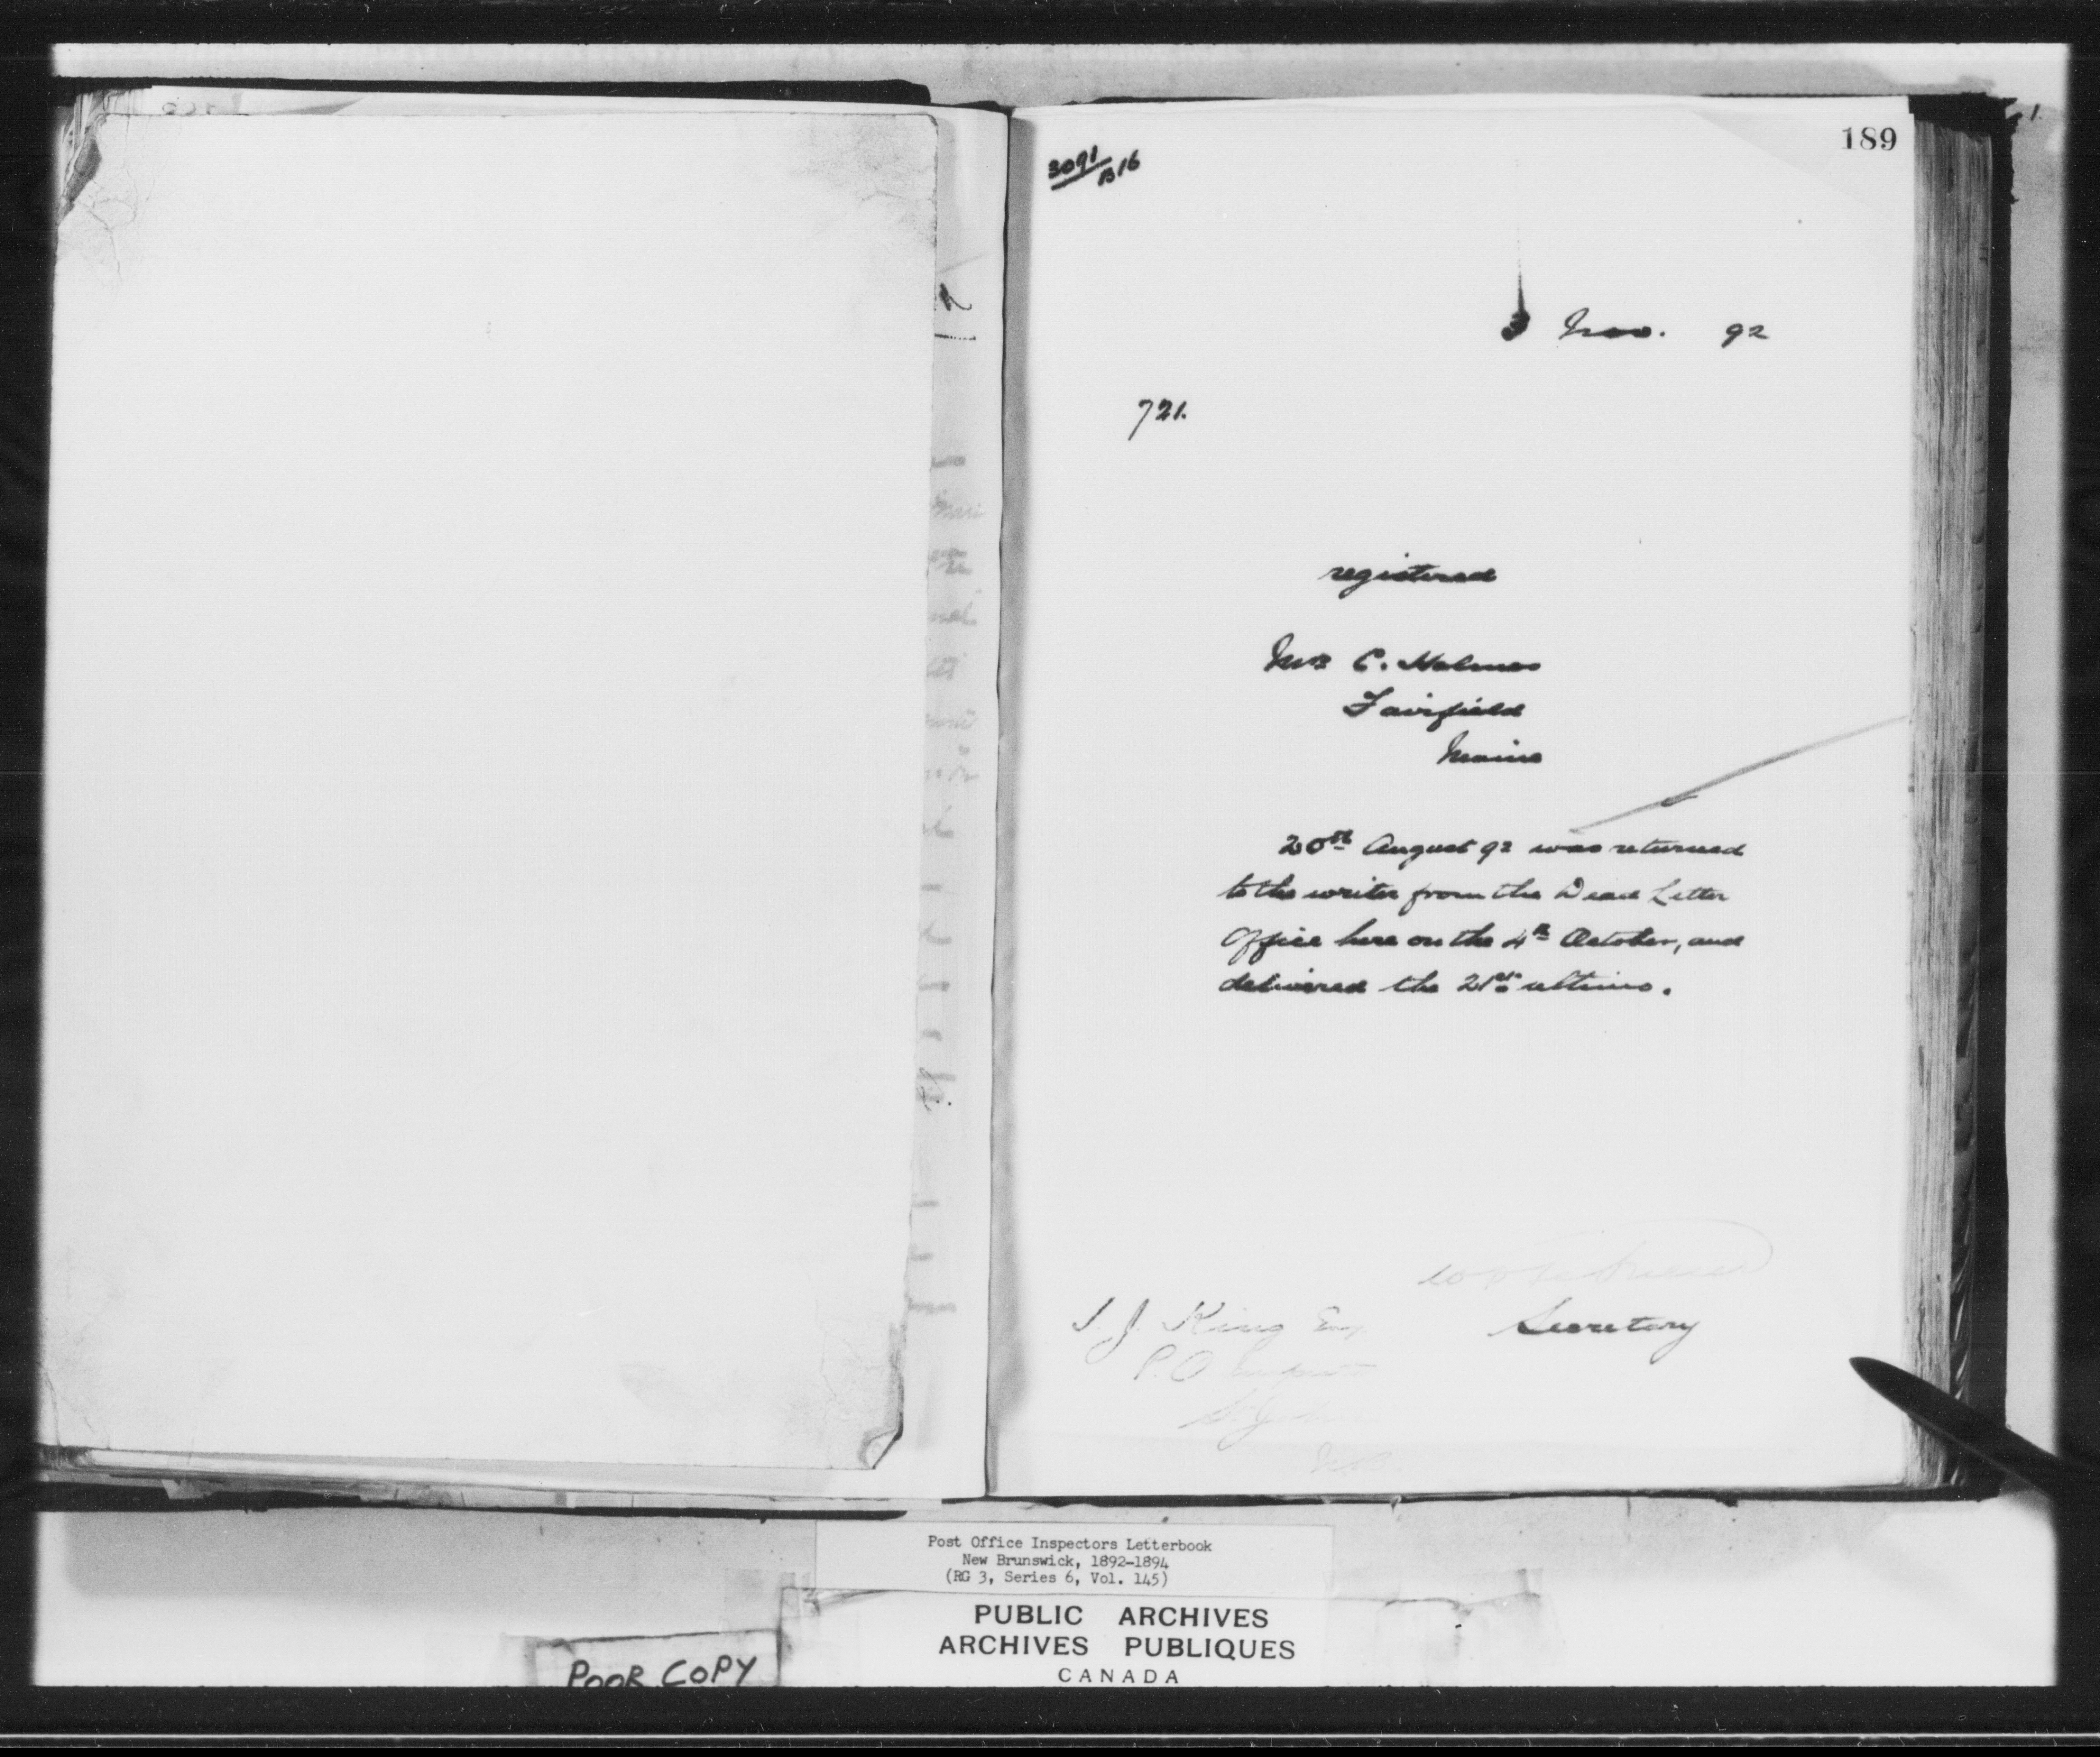 189
3091/B16
3 Nov. 92
721.
registered
Mrs C. Holmes
Fairfield
Maine
20th August 92 was returned
to the writer from the Dead Letter
Office here on the 4th October, and
delivered the 21st ultimo.
Secretary
S. J. King Esq
P.O. Inspector
St John
N.B.
Post Office Inspectors Letterbook
New Brunswick, 1892-1894
(RG 3, Series 6, Vol. 145)
PUBLIC ARCHIVES
ARCHIVES PUBLIQUES
CANADA
POOR COPY